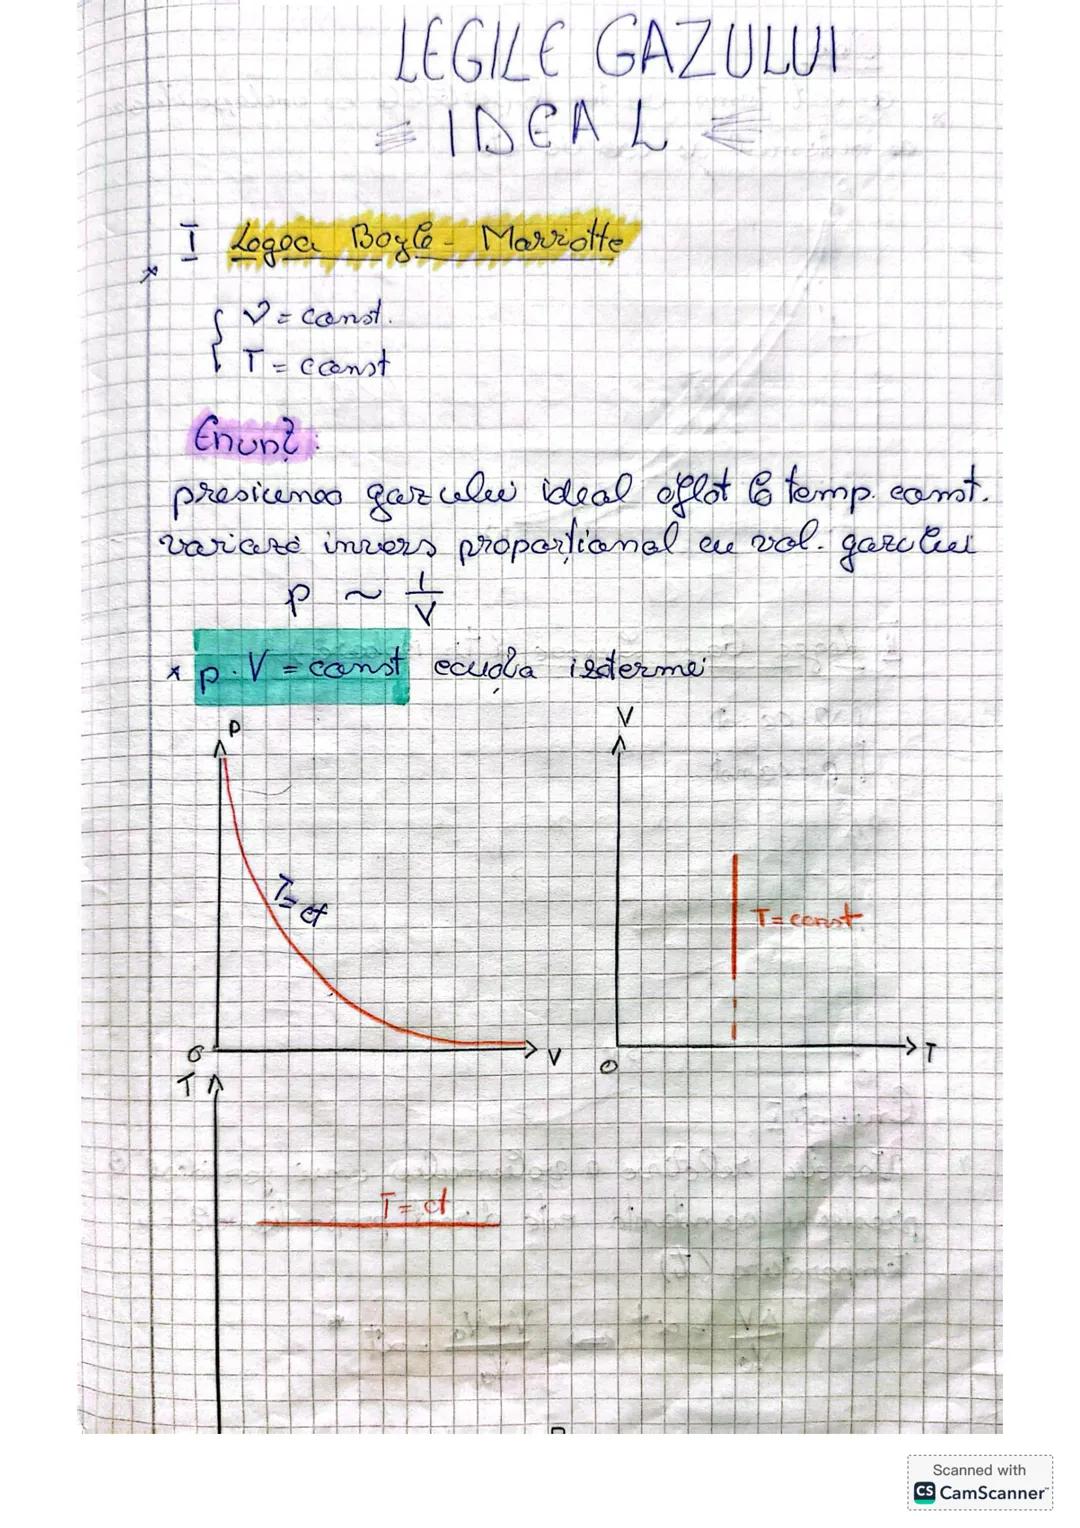 LEGILE GAZULUI
IDEAL
I Legea Boyle - Marriotte
ν = const.
T = const
Enunț:
presiunea gazului ideal aflat la temp. const.
variază invers proporțional cu vol. gazului
p ~ 1/V
* p · V = const ecuația izotermei
P
V
T = ct
T = const.
O
V
O
T
T
T = ct
Scanned with
CS CamScanner